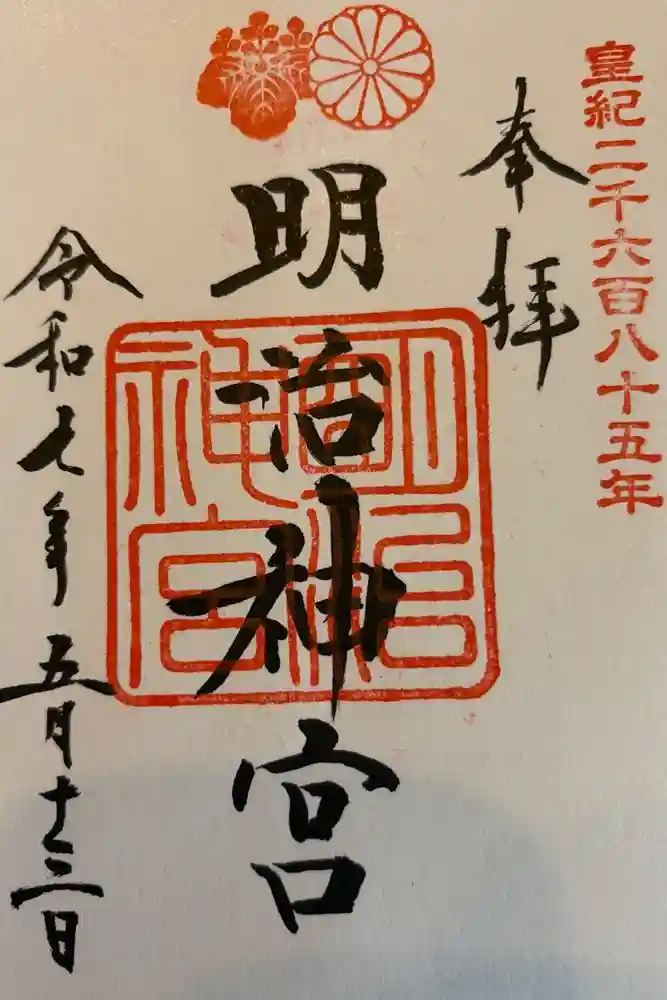 皇紀二千六百八十五年
奉拝
明治神宮
明治神宮
令和七年五月十三日